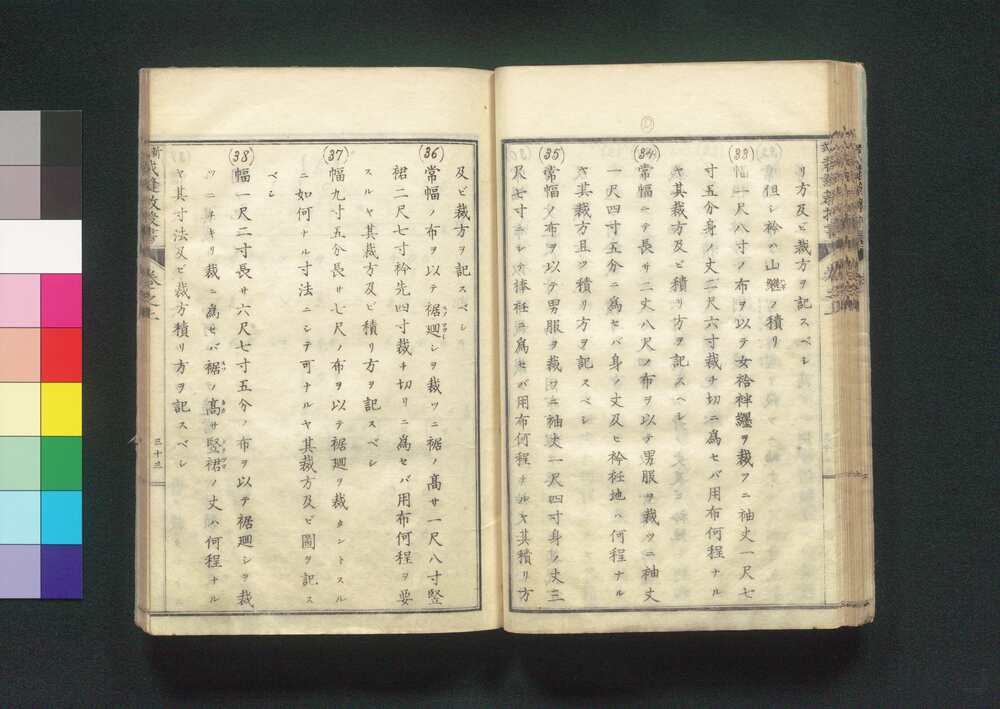 リ方及ビ裁方ヲ記スベシ
但シ衿ハ山繼ノ積リ
(33)
幅一尺八寸ノ布ヲ以テ女袷袢纏ヲ裁ツニ袖丈一尺七
寸五分身ノ丈二尺六寸裁チ切ニ為セバ用布何程ナル
ヤ其裁方及ビ積リ方ヲ記スベシ
(34)
常幅ニテ長サ二丈八尺ノ布ヲ以テ男服ヲ裁ツニ袖丈
一尺四寸五分ニ為セバ身ノ丈及ビ衿衽地ハ何程ナル
ヤ其裁方且ツ積リ方ヲ記スベシ
(35)
常幅ノ布ヲ以テ男服ヲ裁ツニ袖丈一尺四寸身ノ丈三
尺七寸ニシテ棒衽ニ為セバ用布何程ナルヤ其積リ方
及ビ裁方ヲ記スベシ
(36)
常幅ノ布ヲ以テ裾廻シヲ裁ツニ裾ノ髙サ一尺八寸竪
裙二尺七寸衿先四寸裁チ切リニ為セバ用布何程ヲ要
スルヤ其裁方及ビ積リ方ヲ記スベシ
(37)
幅九寸五分長サ七尺ノ布ヲ以テ裾廻ヲ裁タントスル
ニ如何ナル寸法ニシテ可ナルヤ其裁方及ビ圖ヲ記ス
ベシ
(38)
幅一尺二寸長サ六尺七寸五分ノ布ヲ以テ裾廻シヲ裁
ツニチキリ裁ニ為セバ裾ノ髙サ竪裙ノ丈ハ何程ナル
ヤ其寸法及ビ裁方積リ方ヲ記スベシ
三十三
裁縫教授書 卷之上